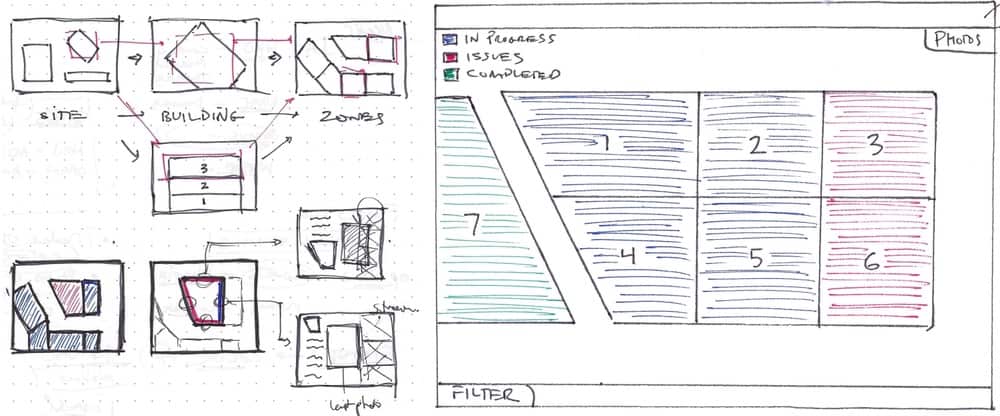 SITE → BUILDING → ZONES
3
2
1
last photo
IN PROGRESS
ISSUES
COMPLETED
PHOTOS
1
2
3
7
4
5
6
FILTER